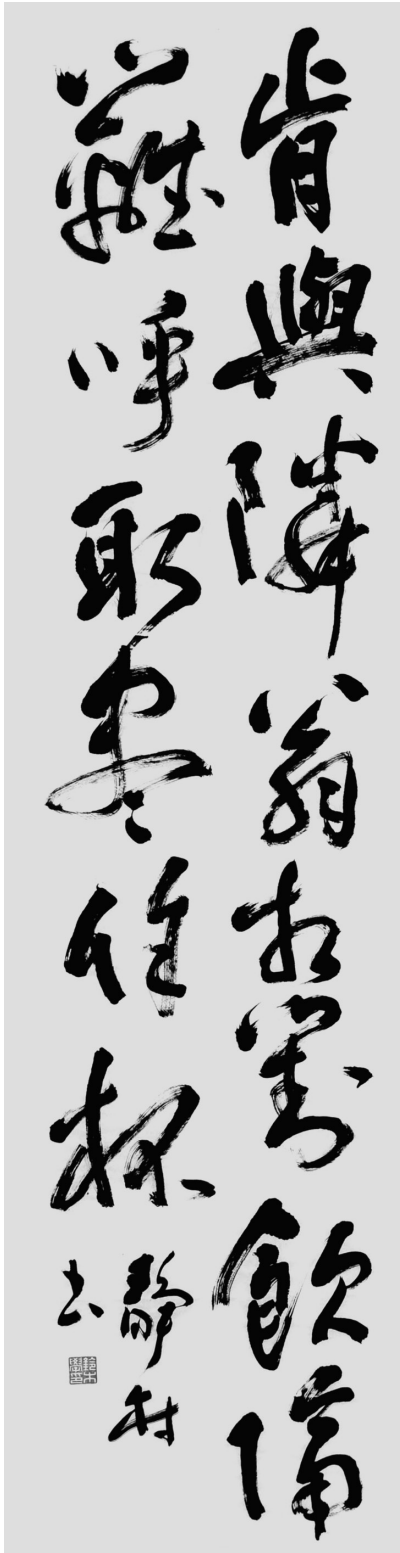 肯與隣翁相對飲隔
籬呼取盡餘杯
靜村
書